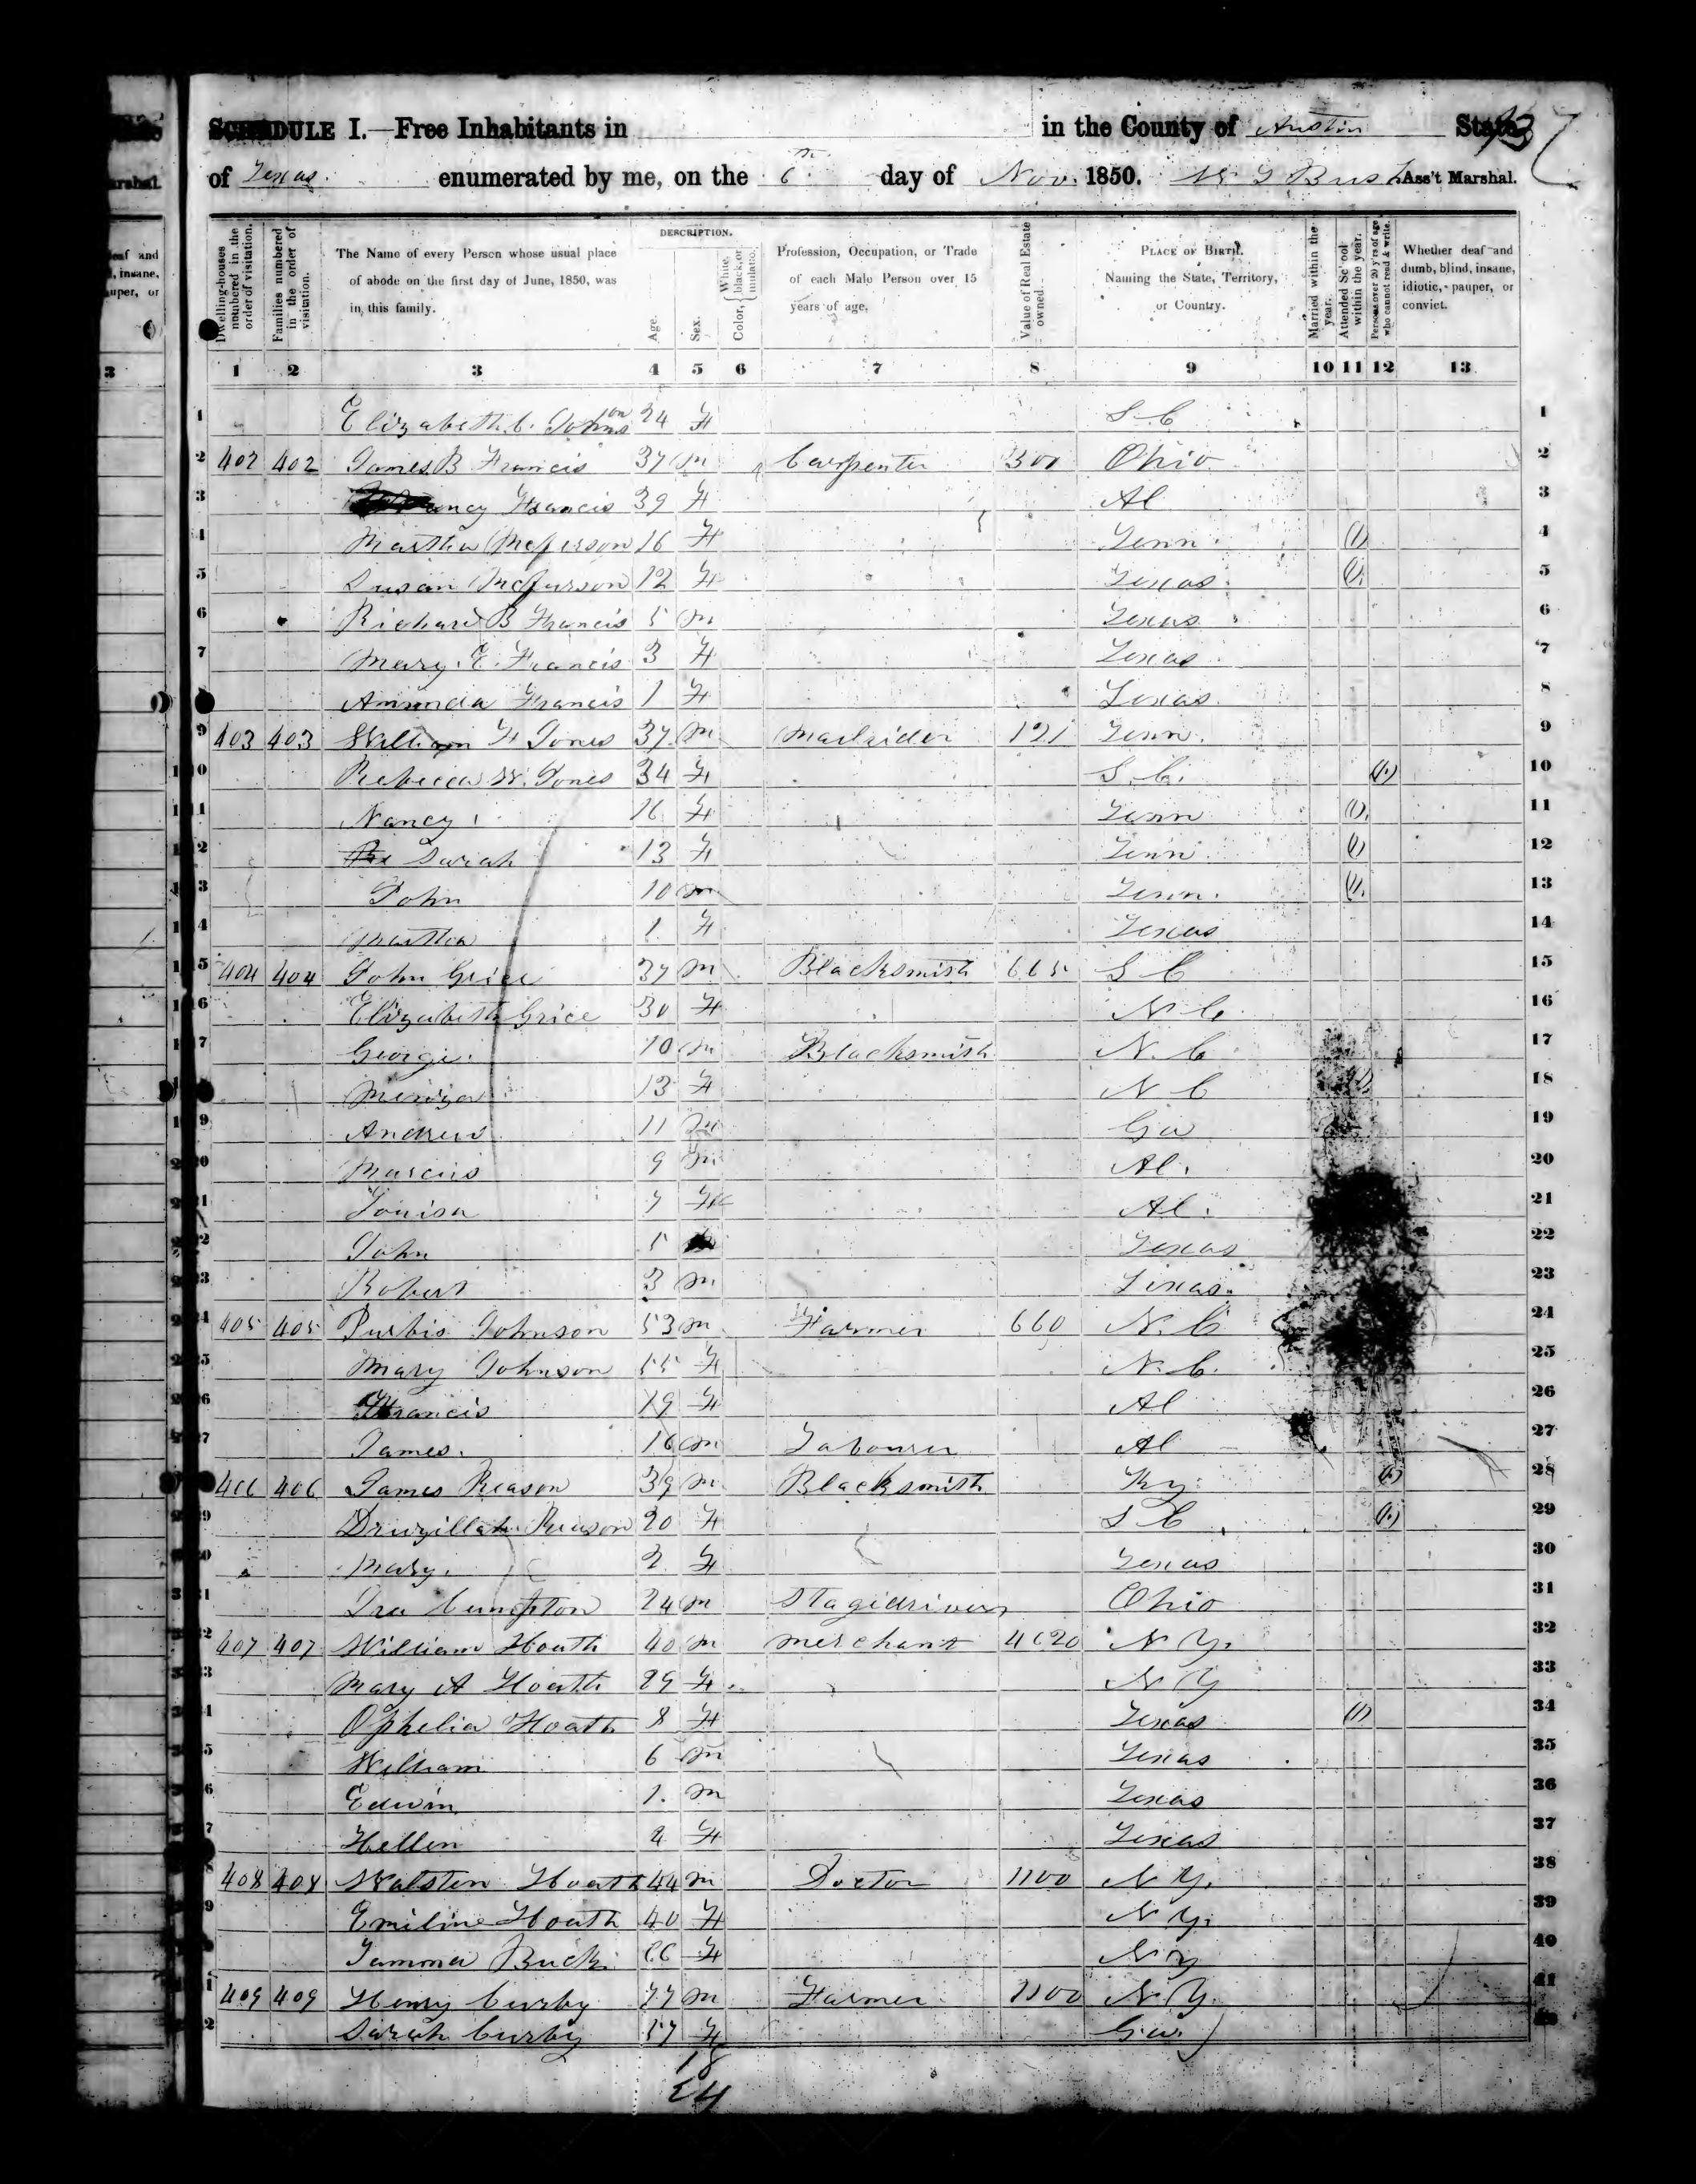 SCHEDULE I.—Free Inhabitants in in the County of Austin State
of Texas. enumerated by me, on the 6th day of Nov. 1850. Ass't Marshal.
Dwelling-houses numbered in the order of visitation.
Families numbered in the order of visitation.
The Name of every Person whose usual place of abode on the first day of June, 1850, was in this family.
DESCRIPTION.
Age.
Sex.
Color, { White, black, or mulatto.
Profession, Occupation, or Trade of each Male Person over 15 years of age.
Value of Real Estate owned.
PLACE OF BIRTH. Naming the State, Territory, or Country.
Married within the year.
Attended School within the year.
Persons over 20 y'rs of age who cannot read & write.
Whether deaf and dumb, blind, insane, idiotic, pauper, or convict.
1 2 3 4 5 6 7 8 9 10 11 12 13
1 Elizabeth C. Johnson 24 F S C 1
2 402 402 James B Francis 37 m Carpenter 300 Ohio 2
3 Nancy Francis 39 F Al 3
4 Martha 16 F Tenn. (1) 4
5 Susan 12 F Texas. (1. 5
6 Richard B Francis 5 m Texas 6
7 Mary. E. Francis 3 F Texas 7
Francis 1 F Texas. 8
9 403 403 William F Jones 37 m Mailrider 121 Tenn. 9
10 Rebecca W. Jones 34 F S. C. (1.) 10
11 Nancy 16 F Tenn (1). 11
12 Sarah 13 F Tenn (1) 12
13 John 10 m Tenn. (1. 13
14 Martha 1 F Texas 14
15 404 404 John Grice 37 m Blacksmith 665 S C 15
16 Elizabeth Grice 30 F N C 16
17 George. m Blacksmith N. C 17
13 F N C 18
19 Andrew 11 m Ga 19
20 Marcus 9 m Al. 20
21 Louisa 7 F Al. 21
22 John 5 Texas 22
23 Robert 3 m Texas. 23
24 405 405 Johnson 53 m Farmer 660 N. C 24
25 Mary Johnson 55 F N. C. 25
26 Francis 19 F Al 26
27 James. 16 m Labourer Al 27
406 406 James Reason 39 m Blacksmith Ky. (1.) 28
29 Druzillah Reason 20 F S C (1.) 29
30 Mary. 2 F Texas 30
31 Ira Cumpton 24 m Stagedriver Ohio 31
32 407 407 William Heath 40 m Merchant 4620 N Y. 32
33 Mary A Heath 29 F N Y 33
34 Ophelia Heath 8 F Texas (1) 34
35 William 6 m Texas 35
36 Edwin 1. m Texas 36
37 Hellen F Texas 37
38 408 408 Walsten Heath 44 m Doctor 1100 N Y. 38
39 Emiline Heath 40 F N Y. 39
F N Y 40
41 409 409 Henry Curby m Farmer N Y. 41
Sarah Curby 57 F Ga.
18
24